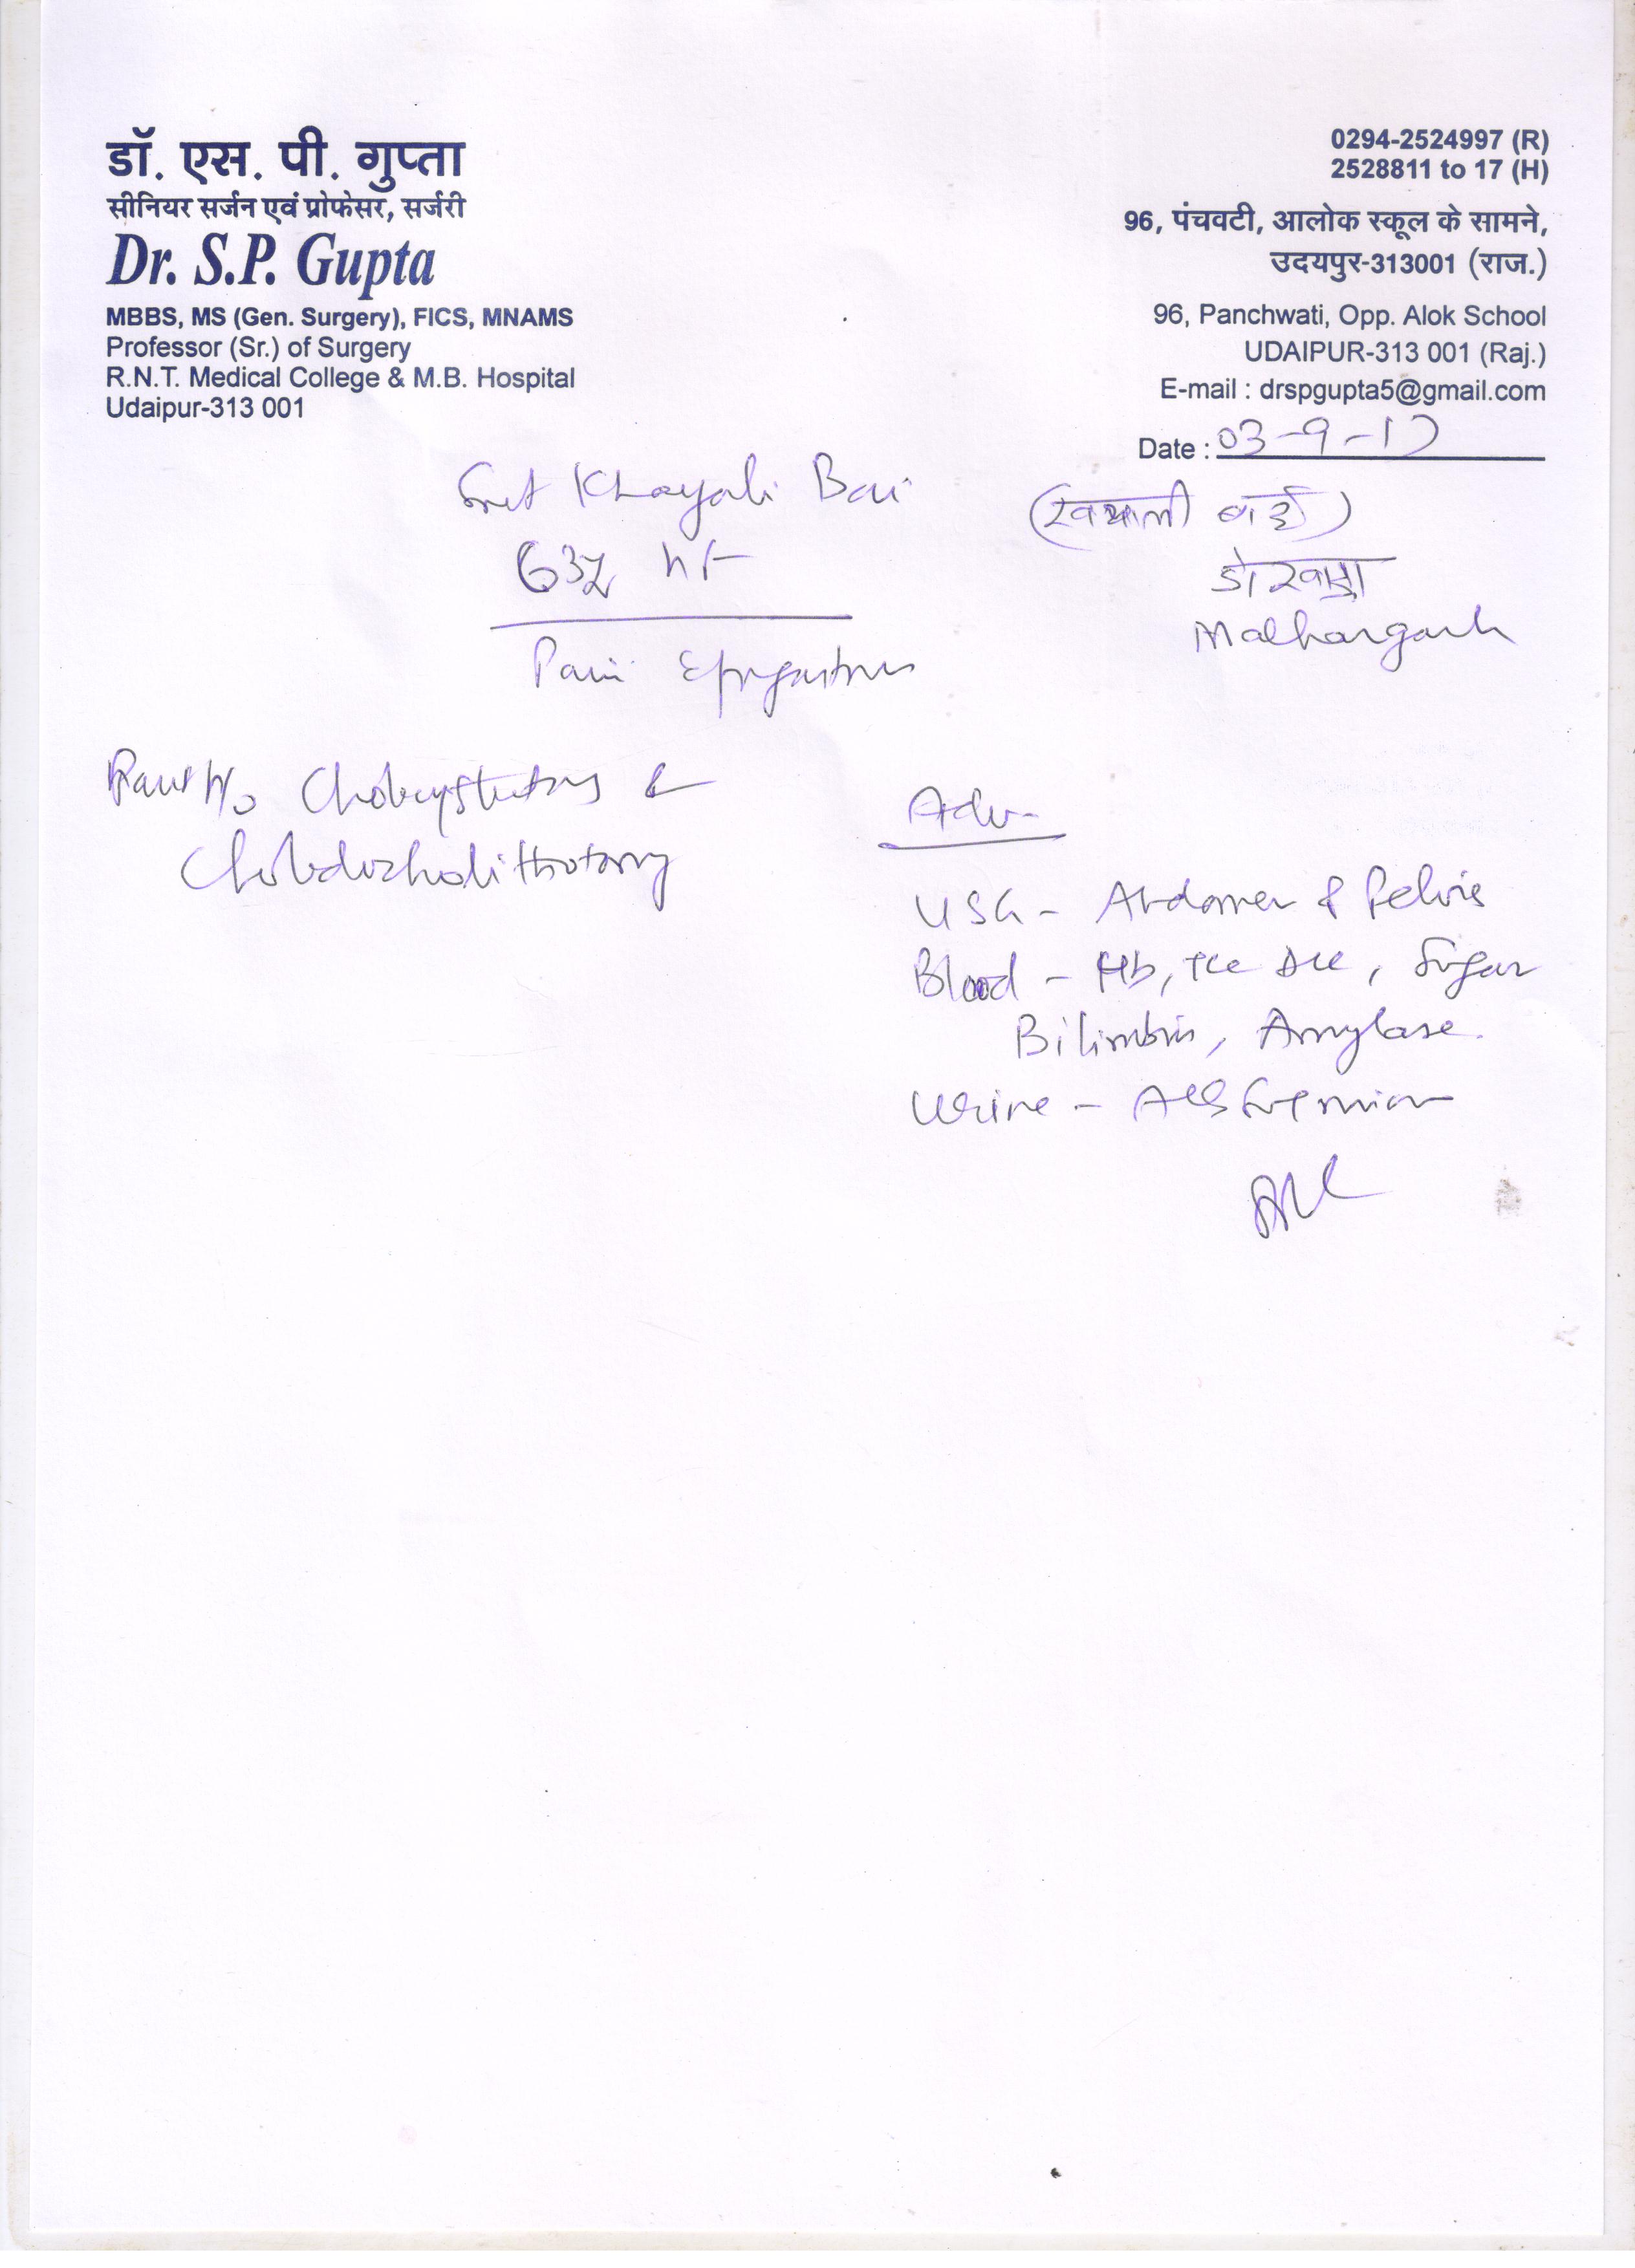 डॉ. एस. पी. गुप्ता
सीनियर सर्जन एवं प्रोफेसर, सर्जरी
Dr. S.P. Gupta
MBBS, MS (Gen. Surgery), FICS, MNAMS
Professor (Sr.) of Surgery
R.N.T. Medical College & M.B. Hospital
Udaipur-313 001
0294-2524997 (R)
2528811 to 17 (H)
96, पंचवटी, आलोक स्कूल के सामने,
उदयपुर-313001 (राज.)
96, Panchwati, Opp. Alok School
UDAIPUR-313 001 (Raj.)
E-mail : drspgupta5@gmail.com
Date : 03-9-17
Smt Khayali Bai
(ख्याली बाई)
63y
Malhargarh
Pain Epigastrium
Past H/o Cholecystectomy &
Choledocholithotomy
Adv-
USG - Abdomen & Pelvis
Blood - Hb, TLC DLC, Sugar
Bilirubin, Amylase
Urine - Alb Sug micro